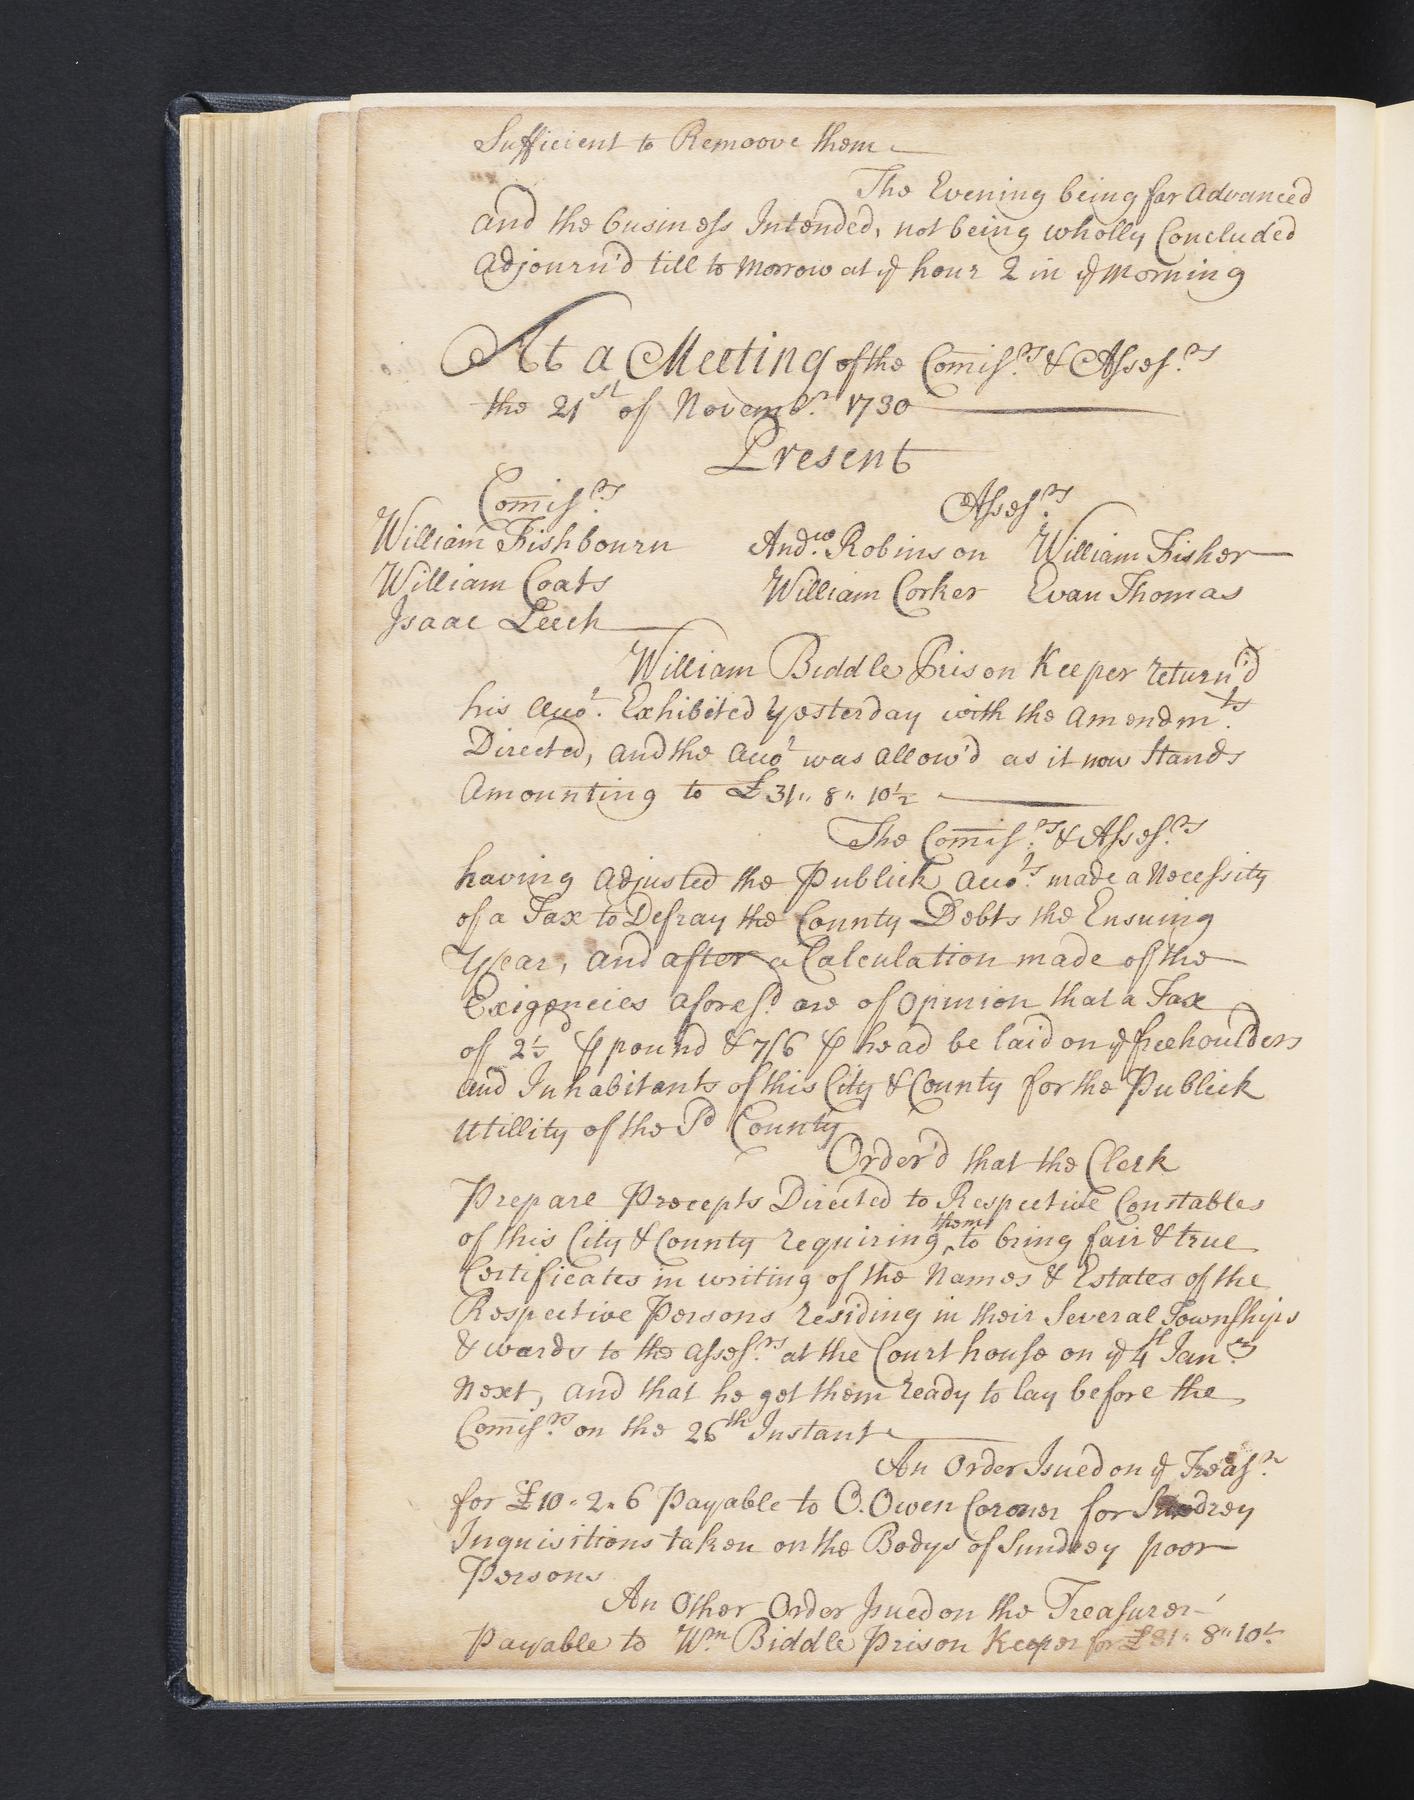 Sufficient to Remoove them
The Evening being far advanced
and the business Intended, not being wholly Concluded
adjourn'd till to Morrow at ye hour 2 in ye Morning
At a Meeting of the Comisrs & Assesrs
the 21st of Novembr 1730
Present
Comisrs
Assesrs
William Fishbourn Andw Robinson William Fisher
William Coats William Corker Evan Thomas
Isaac Leech
William Biddle Prison Keeper return'd
his accot Exhibited yesterday with the amendmts
Directed, and the accot was allow'd as it now Stands
amounting to £31" 8" 10½
The Comisrs & Assesrs
having adjusted the Publick accots made a Necessity
of a Tax to Defray the County Debts the Ensuing
Year, and after a Calculation made of the
Exigencies aforesd are of opinion that a Tax
of 2½d ⅌ pound & 7/6 ⅌ head be laid on ye freehoulders
and Inhabitants of this City & County for the Publick
Utillity of the Sd County
Order'd that the Clerk
Prepare Precepts Directed to Respective Constables
of this City & County requiring ^them to bring fair & true
Certificates in writing of the Names & Estates of the
Respective Persons residing in their Several Townships
& wards to the assesrs at the Court house on ye 4th Janry
Next, and that he get them ready to lay before the
Comisrs on the 26th Instant
An Order Isued on ye Treasr
for £10 " 2 " 6 Payable to O. Owen Coroner for Sundrey
Inquisitions taken on the Bodys of Sundrey poor
Persons
An Other Order Isued on the Treasurer
Payable to Wm Biddle Prison Keeper for £31" 8" 10½